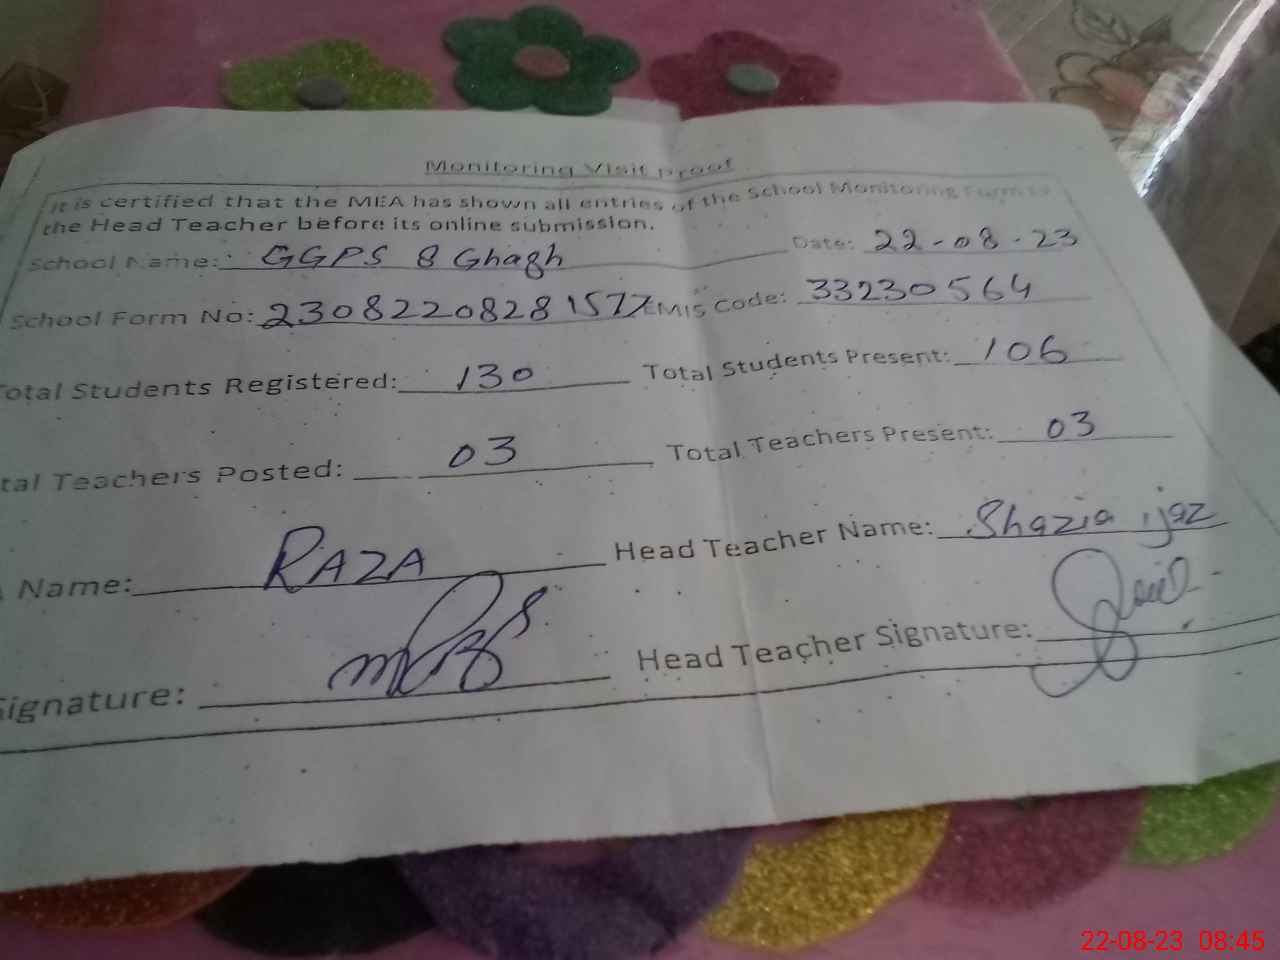 Monitoring Visit proof
It is certified that the MEA has shown all entries of the School Monitoring Form to
the Head Teacher before its online submission.
School Name: GGPS 8 Ghagh Date: 22-08-23
School Form No: 2308220828 1577 EMIS Code: 33230564
Total Students Registered: 130 Total Students Present: 106
tal Teachers Posted: 03 Total Teachers Present: 03
Name: RAZA Head Teacher Name: Shazia ijaz
Signature: Head Teacher Signature:
22-08-23 08:45